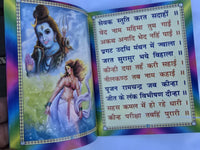 सेवक स्तुति करत सदाहीं ॥
वेद नाम महिमा तुव गाई
अकथ अनादि भेद नहिं पाई ॥
प्रगट उदधि मंथन में ज्वाला
जरत सुरासुर भये विहाला ॥
कीन्ही दया तहँ करी सहाई
नीलकण्ठ तब नाम कहाई ॥
पूजन रामचन्द्र जब कीन्हा
जीत के लंक विभीषण दीन्हा ॥
सहस कमल में हो रहे धारी
कीन्ह परीक्षा तबहिं पुरारी ॥